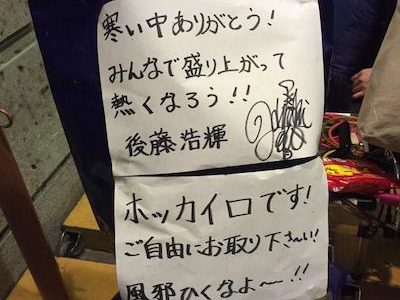 寒い中ありがとう!
みんなで盛り上がって
熱くなろう!!
後藤浩輝
ホッカイロです!
ご自由にお取り下さ～い!
風邪ひくなよ～!!